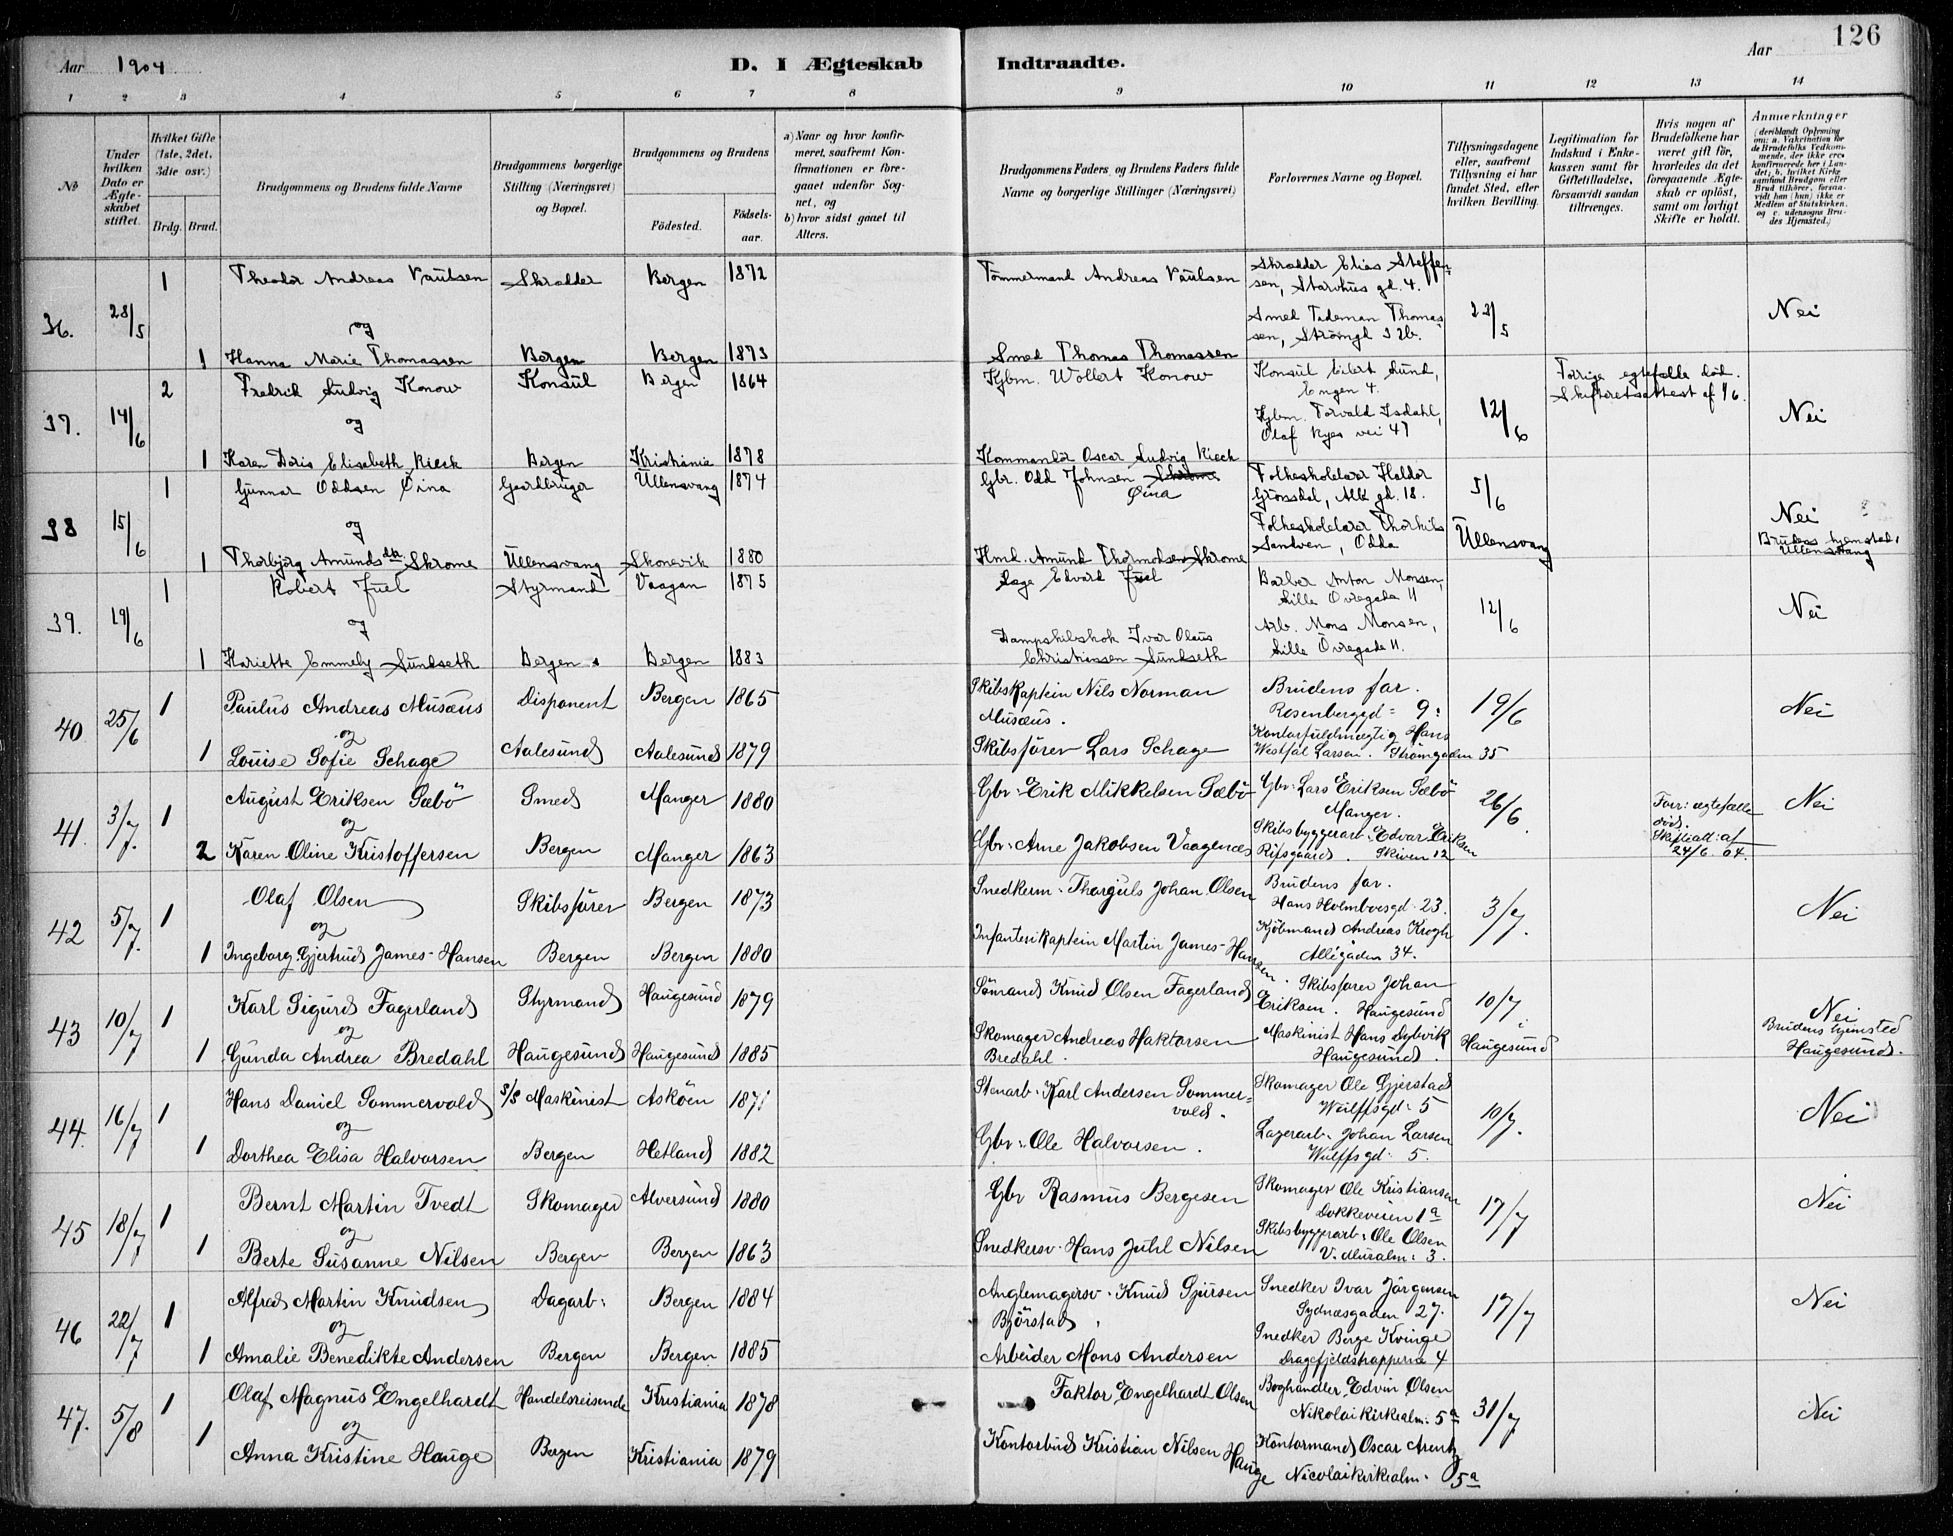 126
Aar 1904
D. I Ægteskab Indtraadte.
Aar
1 2 3 4 5 6 7 8 9 10 11 12 13 14
No
Under hvilken Dato er Ægteskabet stiftet.
Hvilket Gifte (1ste, 2det, 3die osv.)
Brdg. Brud.
Brudgommens og Brudens fulde Navne
Brudgommens borgerlige Stilling (Næringsvei) og Bopæl.
Brudgommens og Brudens
Födested.
Födselsaar.
a) Naar og hvor konfirmeret, saafremt Konfirmationen er foregaaet udenfor Sognet, og
b) hvor sidst gaaet til Alters.
Brudgommens Faders og Brudens Faders fulde Navne og borgerlige Stillinger (Næringsvei)
Forlovernes Navne og Bopæl.
Tillysningsdagene eller, saafremt Tillysning ei har fundet Sted, efter hvilken Bevilling.
Legitimation for Indskud i Enkekassen samt for Giftetilladelse, forsaavidt saadan tiltrænges.
Hvis nogen af Brudefolkene har været gift för, hvorledes da det foregaaende Ægteskab er oplöst, samt om lovligt Skifte er holdt.
Anmærkninger
(deriblandt Oplysning om: a. Vakcination for de Brudefolks Vedkommende, der ikke ere konfirmerede her i Landet; b. hvilket Kirkesamfund Brudgom eller Brud tilhörer, forsaavidt han (hun) ikke er Medlem af Statskirken, og c. udensogns Brudes Hjemsted.)
36. 28/5 1 Theodor Andreas Paulsen Skrædder Bergen 1872 Tömmermand Andreas Paulsen Skrædder Elias Steffensen, Starvhus gd. 4.
og Smed Tideman Thomassen, Strömgd 32b. 22/5 Nei
1 Hanna Marie Thomassen Bergen Bergen 1873 Smed Thomas Thomassen
37. 14/6 2 Fredrik Ludvig Konow Konsul Bergen 1864 Kjbm. Wollert Konow Konsul Eilert Lund, Engen 4. Forrige egtefælle död. Skifteretsattest af 1/6.
og Kjbm. Torvald Isdahl, Olaf Ryes vei 47 12/6 Nei
1 Karen Doris Elisabeth Rieck Bergen Kristiania 1878 Kommandör Oscar Ludvig Rieck
38 15/6 1 Gunnar Oddsen Øina Gardbruger Ullensvang 1874 Gbr. Odd Johnsen Skrome Øina Folkeskolelærer Haldor Grössdal, Alle gd. 18. 5/6
og Folkeskolelærer Thorkils Sandven, Odda Ullensvang Nei
1 Thorbjörg Amundsdtr. Skrome Ullensvang Skonevik 1880 Hmd. Amund Thormodsen Skrome Brudens hjemsted: Ullensvang
39. 19/6 1 Robert Juel Styrmand Vaagan 1875 Edvard Juel Barber Anton Monsen, Lille Övregade 11
og Arb. Mons Monsen, Lille Övregade 11. 12/6 Nei
1 Hariette Emmely Sundseth Bergen Bergen 1883 Dampskibskok Ivar Olaus Christianssen Sundseth
40 25/6 1 Paulus Andreas Musæus Disponent Bergen 1865 Skibskaptein Nils Norman Musæus. Brudens far. Rosenberggd: 9: 19/6 Nei
og Kontorfuldmægtig Hans Westfal Larsen. Strömgaden 35
1 Louise Sofie Schage Aalesund Aalesund 1879 Skibsförer Lars Schage
41. 3/7. 1 August Eriksen Sæbö Smed Manger 1880 Gbr: Erik Mikkelsen Sæbö Gbr: Lars Eriksen Sæbö Manger. 26/6. Forr: egtefælle död. Skifteatt: af 24/6. 04. Nei
og Skibsbyggerarb: Edvar Eriksen Skiven 12
2 Karen Oline Kristoffersen Bergen Manger 1863 Gbr: Arne Jakobsen Vaagenes
42 5/7. 1 Olaf Olsen Skibsförer Bergen 1873 Snedkerm: Thorguls Johan Olsen Brudens far. Hans Holmboesgd: 23. 3/7. Nei
og Kjöbmand Andreas Krogh Allégaden 34.
1 Ingeborg Gjertrud James-Hansen Bergen Bergen 1880 Infanterikaptein Martin James-Hansen.
43 10/7 1 Karl Sigurd Fagerland Styrmand Haugesund 1879 Sömand Knud Olsen Fagerland Skibsförer Johan Eriksen. Haugesund 10/7. Nei
og Maskinist Hans Dybvik Haugesund. Haugesund Brudens hjemsted Haugesund.
1 Gunda Andrea Bredahl Haugesund Haugesund 1885 Skomager Andreas Haktorsen Bredahl.
44. 16/7 1 Hans Daniel Sommervold S/S Maskinist Asköen 1871 Stenarb: Karl Andersen Sommervold. Skomager Ole Gjerstad Wulffsgd: 5 10/7. Nei
og Lagerarb: Johan Larsen Wulffsgd: 5.
1 Dorthea Elisa Halvorsen Bergen Hetland 1882 Gbr: Ole Halvorsen.
45 18/7 1 Bernt Martin Tvedt Skomager Alversund 1880 Gbr Rasmus Bergesen Skomager Ole Kristiansen Dokkeveien 1a 17/7 Nei
og Skibsbyggerarb: Ole Olsen V. Muralm: 3.
1 Berte Susanne Nilsen Bergen Bergen 1863 Snedkersv. Hans Juhl Nilsen
46 22/7 1 Alfred Martin Knudsen Dagarb: Bergen 1884 Knud Gjursen Björstad Snedker Ivar Jörgensen Sydnæsgaden 27. 17/7 Nei
og Snedker Berge Kvinge Dragefjeldstrapperne 4
1 Amalie Benedikte Andersen Bergen Bergen 1885 Arbeider Mons Andersen
47. 5/8 1 Olaf Magnus Engelhardt Handelsreisende Kristiania 1878 Faktor Engelhardt Olsen Boghandler Edvin Olsen Nikolaikirkealm: 5a 31/7 Nei
og Kontormand Oscar Arentz Nicolaikirkealm: 5a
1 Anna Kristine Hauge Bergen Kristiania 1879 Kontorbud Kristian Nilsen Hauge